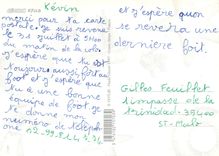 Kévin
merci pour ta carte
postale. Je suis revenu
le 31 juillet à 5H00
du matin de la colo
j'espère que tu est
toujours aussi fort au
foot et j'espère que
tu a une bonne
équipe de foot je
te donne mon
numéro de télépho
ne 02.99.81.
et j'espère qu'on
se reverra une
dernière foit.
Gilles Feuillet
1 impasse de la
trinidad 35400
ST-Malo